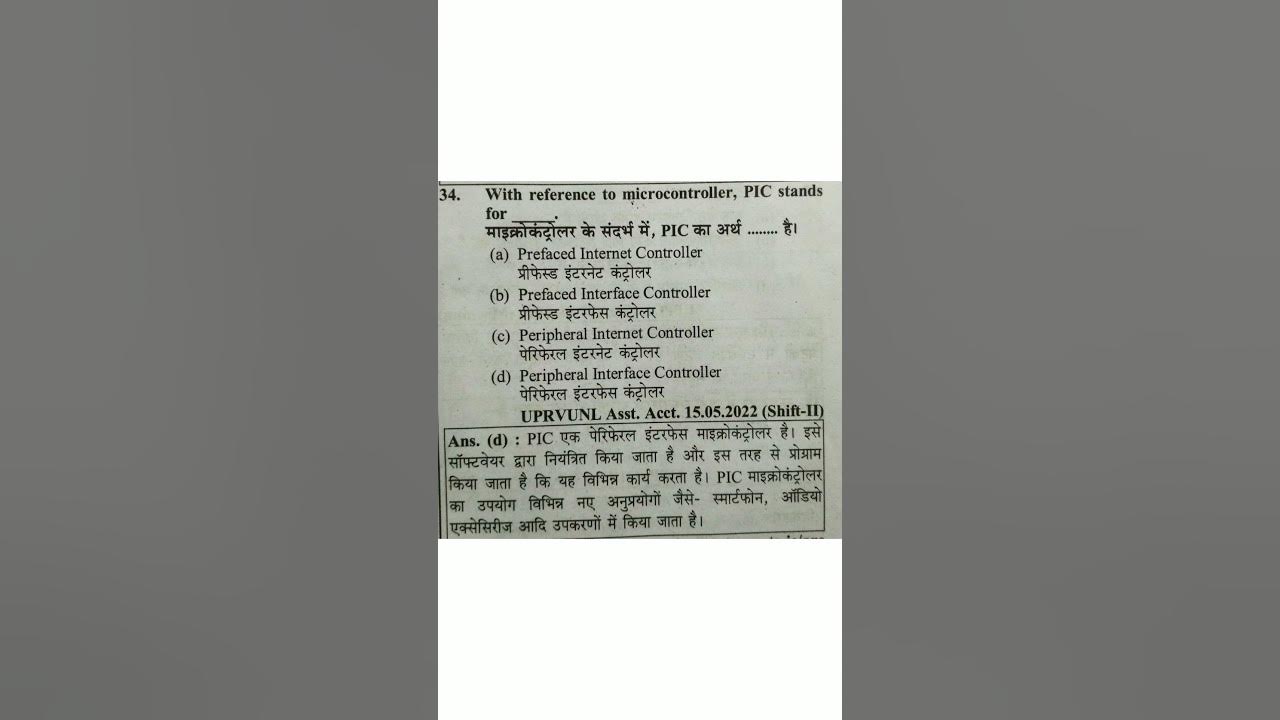 34. With reference to microcontroller, PIC stands
for _____.
माइक्रोकंट्रोलर के संदर्भ में, PIC का अर्थ ........ है।
(a) Prefaced Internet Controller
प्रीफेस्ड इंटरनेट कंट्रोलर
(b) Prefaced Interface Controller
प्रीफेस्ड इंटरफेस कंट्रोलर
(c) Peripheral Internet Controller
पेरिफेरल इंटरनेट कंट्रोलर
(d) Peripheral Interface Controller
पेरिफेरल इंटरफेस कंट्रोलर
UPRVUNL Asst. Acct. 15.05.2022 (Shift-II)
Ans. (d) : PIC एक पेरिफेरल इंटरफेस माइक्रोकंट्रोलर है। इसे
सॉफ्टवेयर द्वारा नियंत्रित किया जाता है और इस तरह से प्रोग्राम
किया जाता है कि यह विभिन्न कार्य करता है। PIC माइक्रोकंट्रोलर
का उपयोग विभिन्न नए अनुप्रयोगों जैसे- स्मार्टफोन, ऑडियो
एक्सेसिरीज आदि उपकरणों में किया जाता है।